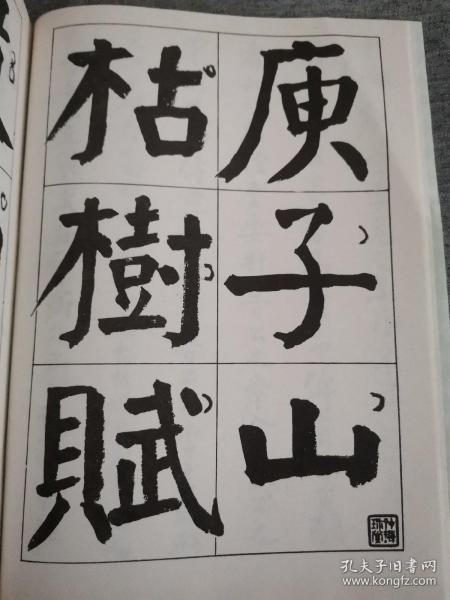 庾子山
枯樹賦
孔夫子旧书网
www.kongfz.com